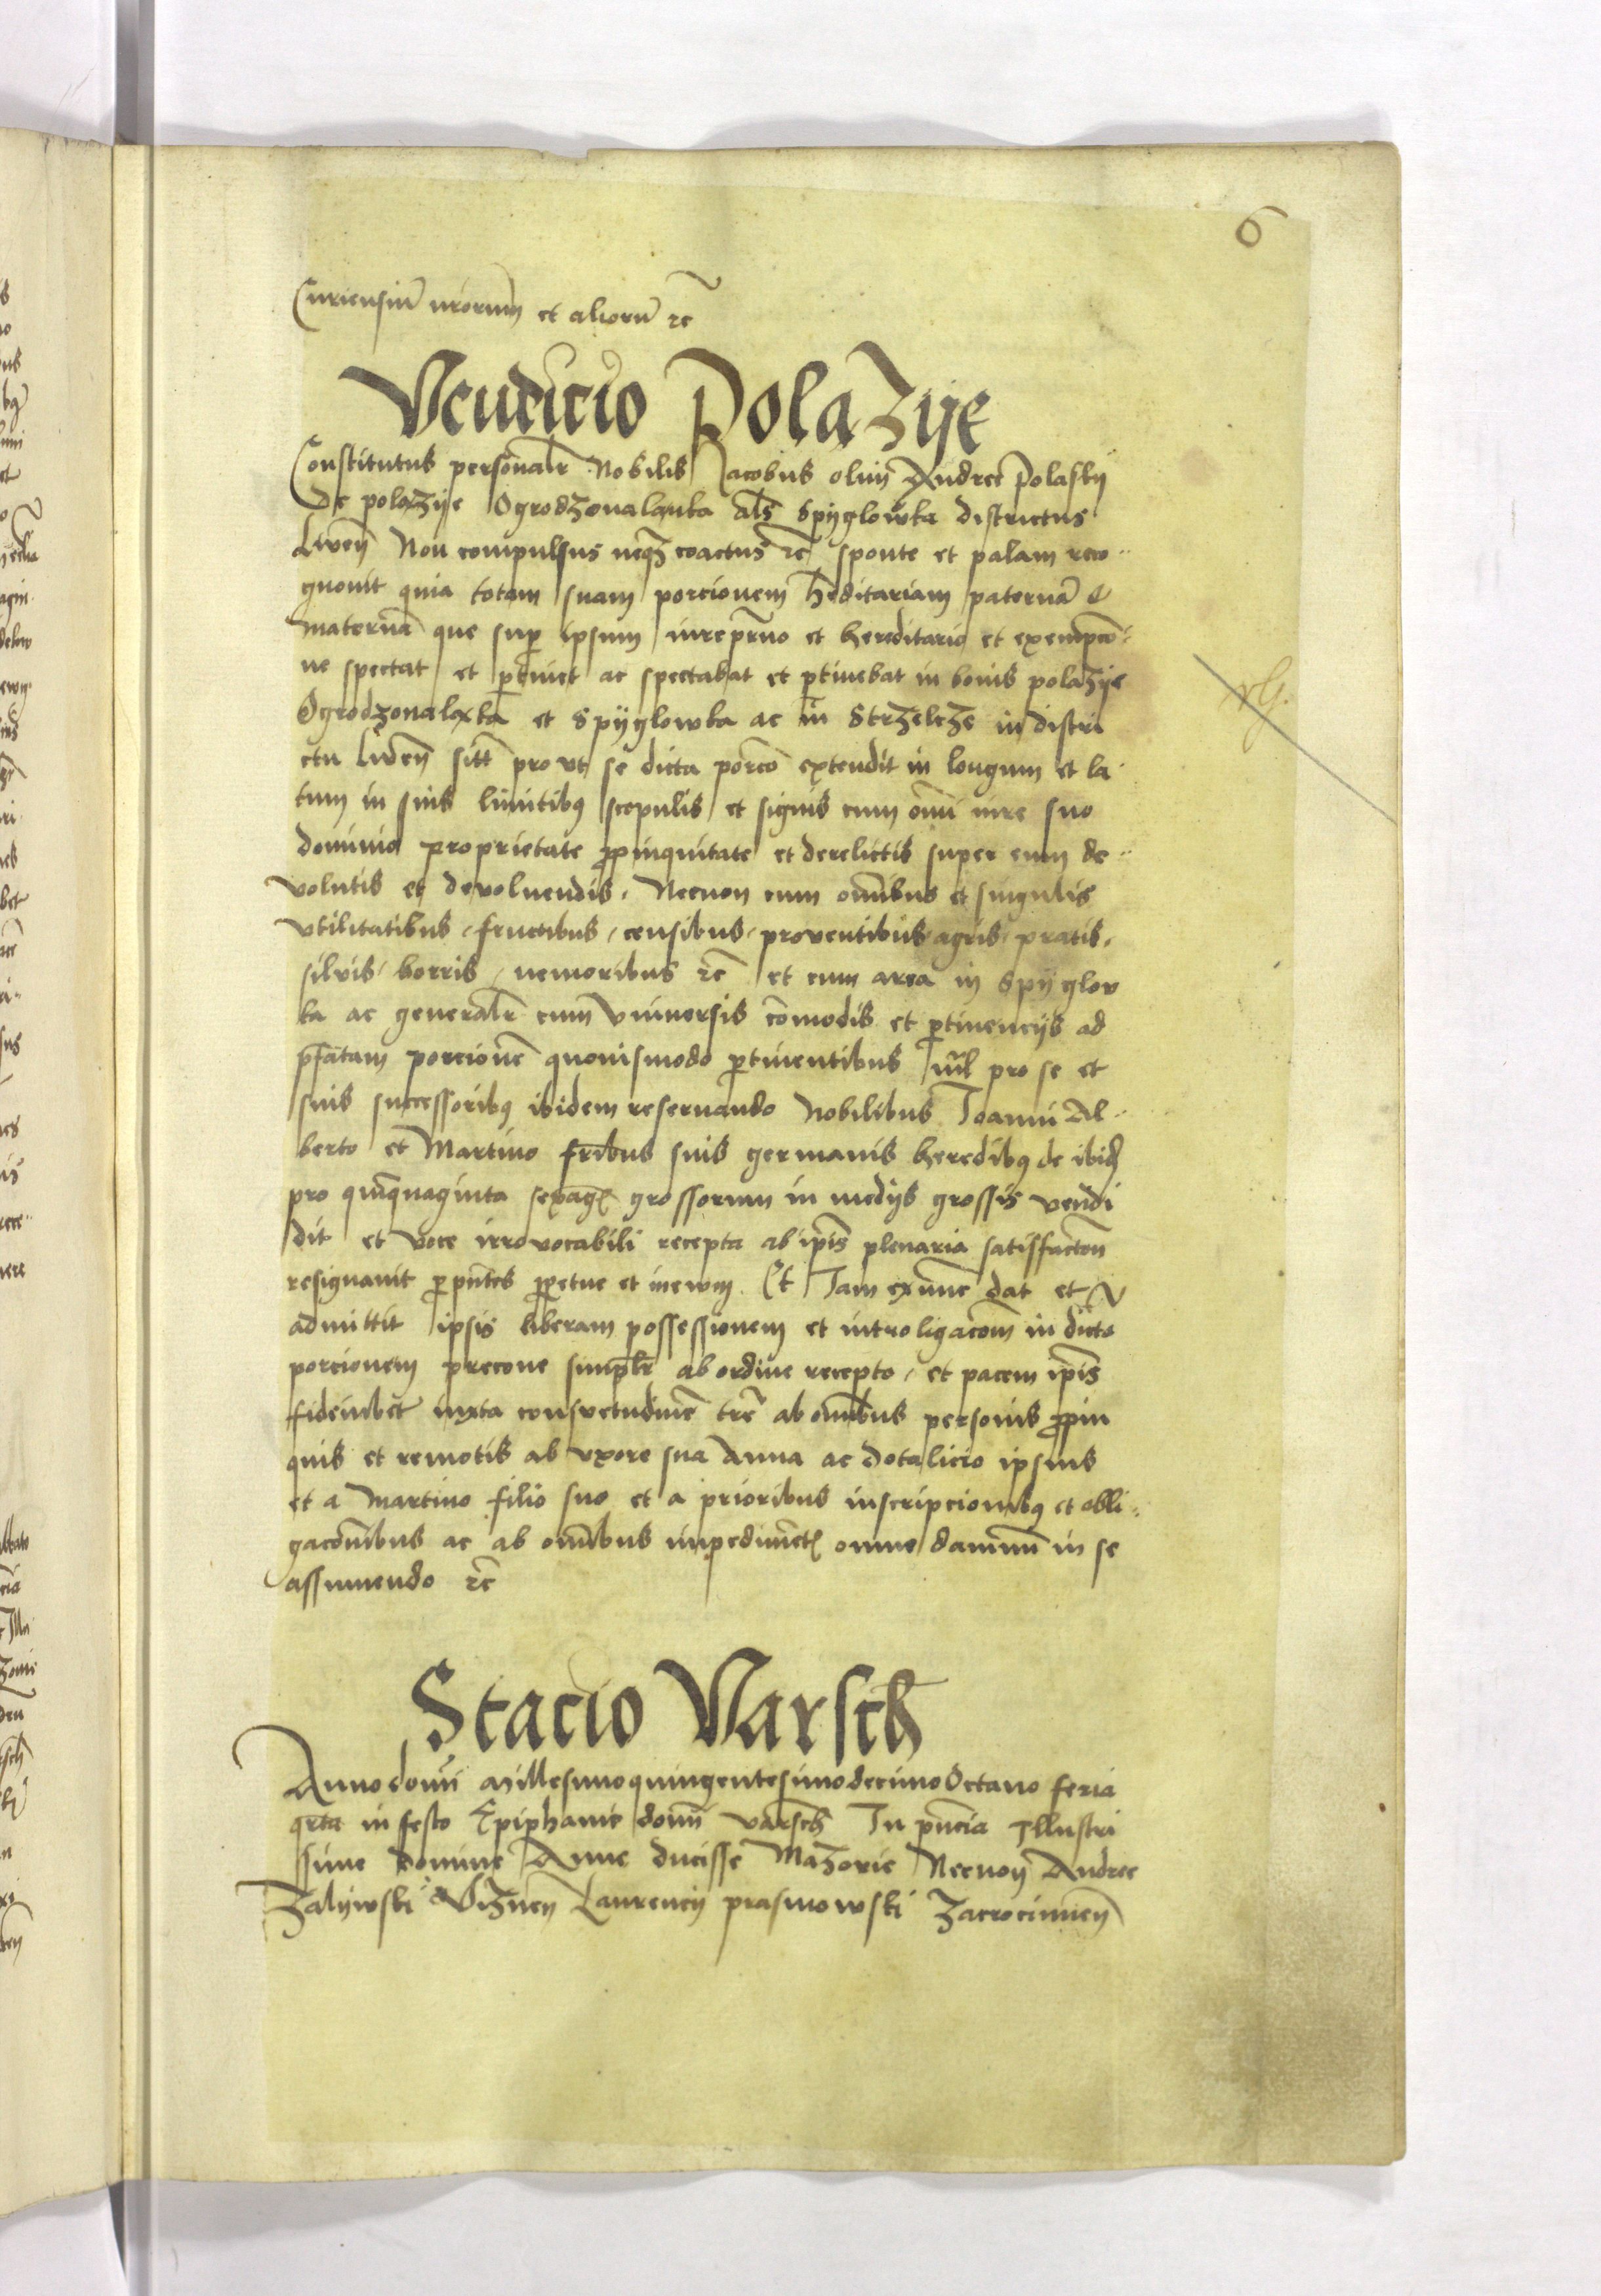 6
Curiensiũ nrorum et aliorũ rc̃
Vendicio Polazije
Constitutus personalr̃ Nobilis Jacobus olim Andree Polaskij
de polazije Ogrodzonalanka als̃ Spijglowka districtus
Liwen̄ Non compulsus neqz coactus rc̃ sponte et palam reco-
gnouit quia totam suam porcionem hęditariam paternã et
maternã que sup ipsum iure pr̃no et hereditario et exempcõ-
ne spectat et ptinet ac spectabat et ptinebat in bonis polazije
Ogrodzonalaka et Spijglowka ac in Strzelcze in distri
ctu Liwen̄ sitt̃ pro vt se dicta porcõ extendit in longum et la-
tum in suis limitibꝯ scopulis et signis cum om̃i iure suo
dominio proprietate ꝓpinquitate et derelictis super eum de-
volutis et devoluendis. Necnon cum om̃ibus et singulis
vtilitatibus, fructibus, censibus, proventibus agris, pratis,
silvis, borris, nemoribus rc̃ et cum area in Spijglow
ka ac generalr̃ cum vniuersis cõmodis et ptinencijs ad
pfatam porcionẽ quouismodo ptinentibus nil̃ pro se et
suis successoribꝯ ibidem reseruando Nobilibus Joanni Al-
berto et Martino fr̃ibus suis germanis heredibꝯ de ibid̃
pro quĩquaginta sexag̃ grossorum in medijs grossis vendi
dit et voce irrevocabili recepta ab ip̃is plenaria satisfactoñ
resignauit p pñtes ppetue et in ewm. Et Jam extunc dat et
admittit ipsis liberam possessionem et introligacõm in dicta
porcionem precone simplr̃ ab ordine recepto, et pacem ip̃is
fideiubet iuxta consuetudinẽ trẽ ab om̃ibus personis ꝓpin
quis et remotis ab vxore sua Anna ac dotalicio ipsius
et a Martino filio suo et a prioribus inscripcionibꝯ et obli-
gacõnibus ac ab om̃ibus impedimẽt omne damnũ in se
assumendo rc̃
Stacio Varsch
Anno domi millesimo quingentesimo decimo Octauo feria
qrta in festo Epiphanie domi varsch̃ In pñcia Illustri
ssime domine Anne ducisse Mazovie Necnon Andree
Zalijwski Viznen̄ Laurencij prasmowski Zacrocimien̄